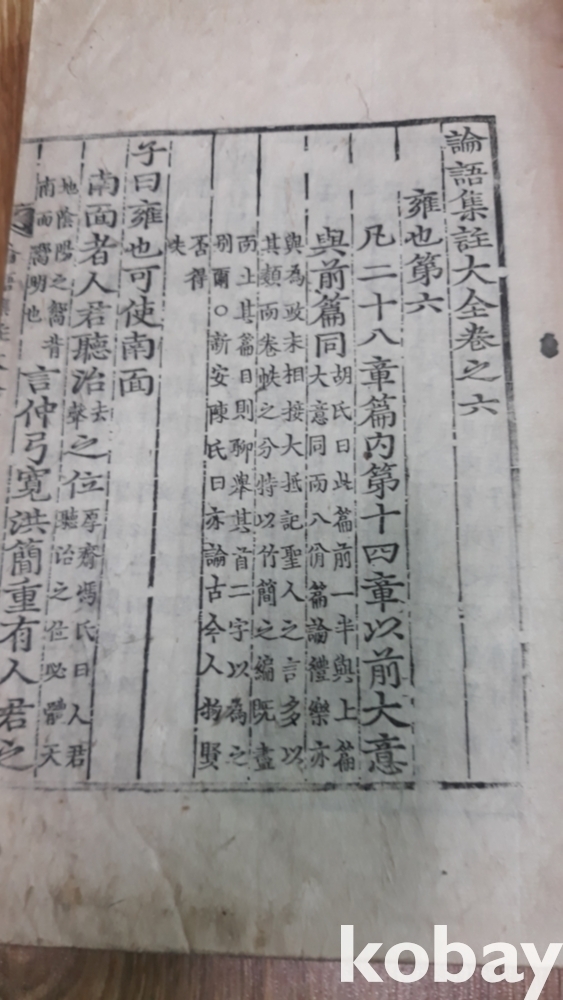 論語集註大全卷之六
雍也第六
凡二十八章篇内第十四章以前大意
與前篇同
胡氏曰此篇前一半與上篇
大意同而八佾篇論禮樂亦
與爲政末相接大抵記聖人之言多以
其類而卷帙之分特以竹簡之編既盡
而止其篇目則聊舉其首二字以爲之
別爾○新安陳氏曰亦論古今人物賢
否得
失
子曰雍也可使南面
南面者人君聽治
去
聲
之位
厚齋馮氏曰人君
聽治之位必體天
地陰陽之嚮背
南面嚮明也
言仲弓寬洪簡重有人君之
kobay